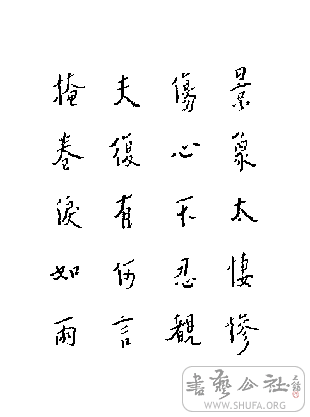 景象太悽慘
傷心不忍觀
夫復有何言
掩卷淚如雨
書藝公社
WWW.SHUFA.ORG